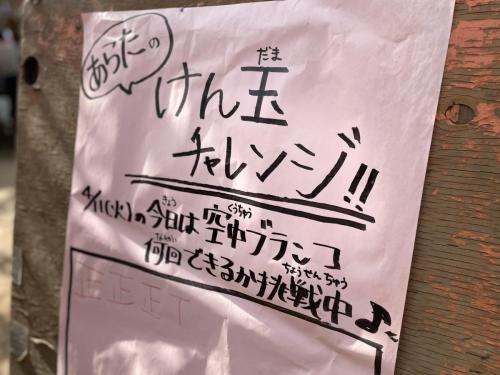 あらたの
けん玉
だま
チャレンジ!!
4/11(火)の今日は空中ブランコ
きょう くうちゅう
何回できるか挑戦中♪
なんかい ちょうせんちゅう
正正正T